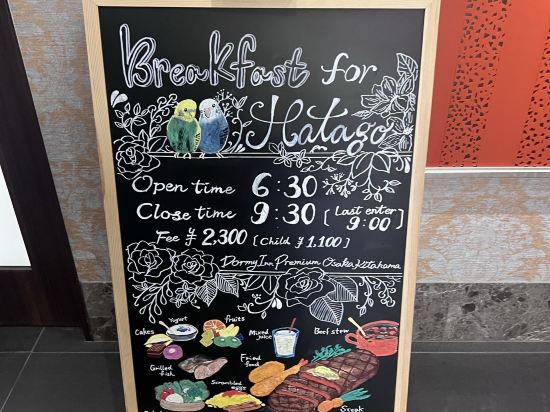 Breakfast for
Hatago
Open time 6:30
Close time 9:30 [Last enter 9:00]
Fee ¥2,300 [Child ¥1,100]
Dormy Inn Premium Osaka Kitahama
Cakes
Yogurt
fruits
Mixed juice
Beef stew
Grilled fish
Fried food
Scrambled eggs
Steak